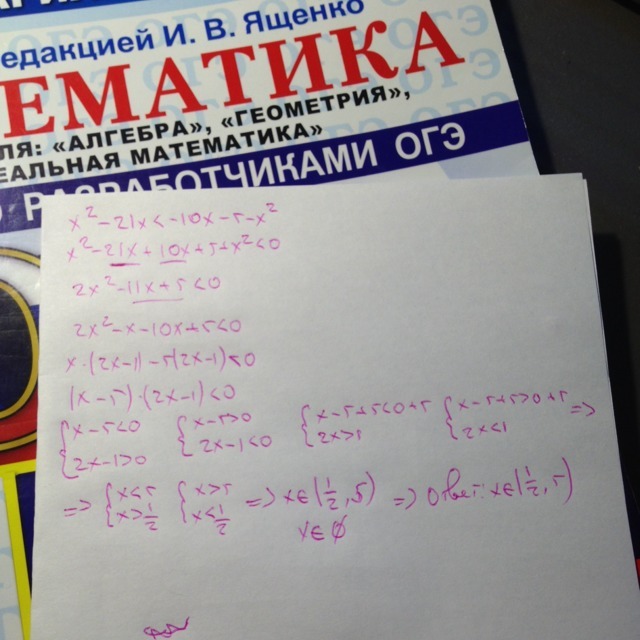 едакцией И. В. Ященко
ЕМАТИКА
ЛЯ: «АЛГЕБРА», «ГЕОМЕТРИЯ»,
ЕАЛЬНАЯ МАТЕМАТИКА»
РАЗРАБОТЧИКАМИ ОГЭ
x² - 21x < -10x - 5 - x²
x² - 21x + 10x + 5 + x² < 0
2x² - 11x + 5 < 0
2x² - x - 10x + 5 < 0
x · (2x - 1) - 5(2x - 1) < 0
(x - 5) · (2x - 1) < 0
{x - 5 < 0 {x - 5 > 0 {x - 5 + 5 < 0 + 5 {x - 5 + 5 > 0 + 5 =>
2x - 1 > 0 2x - 1 < 0 2x > 1 2x < 1
=> {x < 5 {x > 5 => x ∈ (1/2, 5) => Ответ: x ∈ (1/2, 5)
x > 1/2 x < 1/2 x ∈ ∅